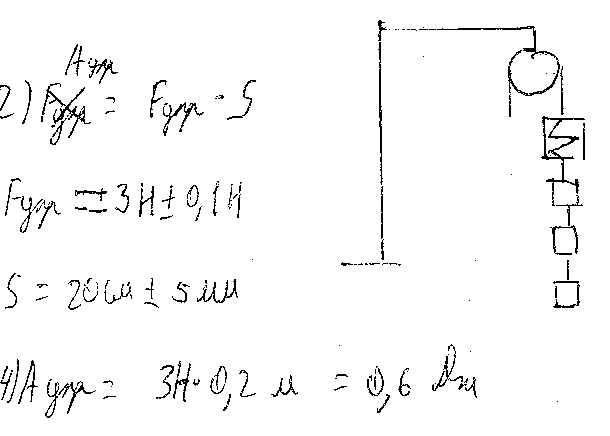 Aупр
2) Fупр = Fупр · S
Fупр = 3Н ± 0,1Н
S = 20см ± 5мм
4) Aупр = 3Н · 0,2 м = 0,6 Дж